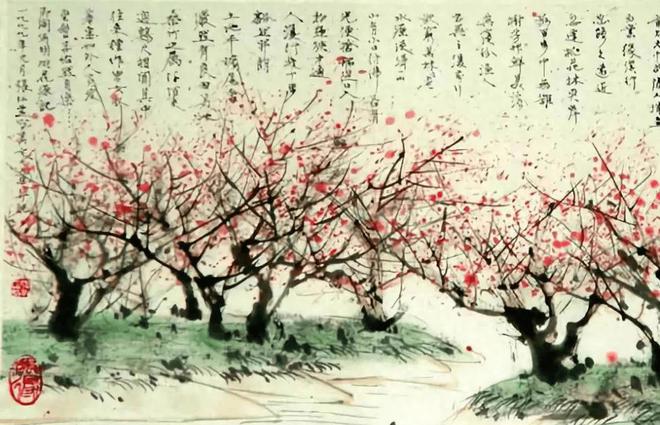 太元中武陵人捕
為業缘溪行
忘路之遠近
忽逢桃花林夹岸
數百步中無雜
樹芳草鮮美落
英缤纷漁人
甚異之復前行
欲窮其林林盡
水源便得一山
山有小口彷彿若有
光便捨船從口入
初極狹才通
人復行數十步
豁然開朗
土地平曠屋舍
儼然有良田美池
桑竹之屬阡陌
交通雞犬相聞其中
往來種作男女衣
著悉如外人黄髮
垂髫並怡然自樂
陶淵明桃花源記
一九九九年元月